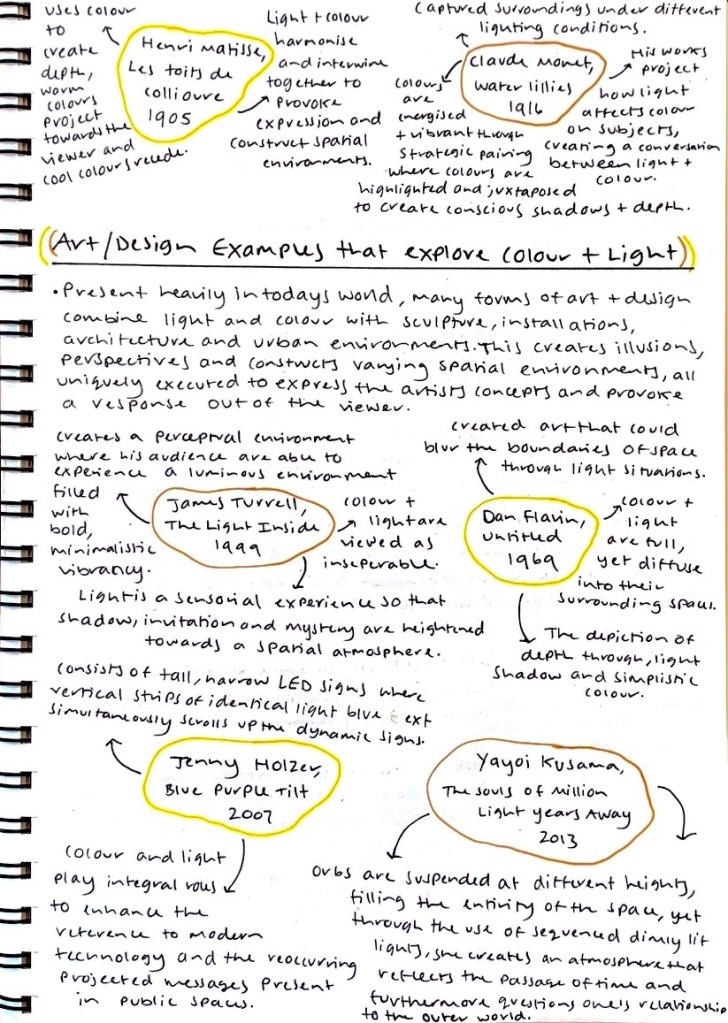 uses colour
to
create
depth,
warm
colours
project
towards the
viewer and
cool colours recede.
Henri Matisse,
Les toits de
collioure
1905
Light + colour
harmonise
and intermine
together to
provoke
expression and
construct spatial
environments.
Captured surroundings under different
lighting conditions.
Claude Monet,
Water lillies
1916
Colours
are
energised
+ vibrant through
strategic pairing
where colours are
highlighted and juxtaposed
to create conscious shadows + depth.
His works
project
how light
affects colour
on subjects,
creating a conversation
between light +
colour.
(Art/Design Examples that explore colour + Light)
• Present heavily in todays world, many forms of art + design
combine light and colour with sculpture, installations,
architecture and urban environments. This creates illusions,
perspectives and constructs varying spatial environments, all
uniquely executed to express the artists concepts and provoke
a response out of the viewer.
creates a perceptual environment
where his audience are able to
experience a luminous environment
filled
with
bold,
minimalistic
vibrancy.
James Turrell,
The Light Inside
1999
colour +
light are
viewed as
inseperable.
Light is a sensorial experience so that
shadow, invitation and mystery are heightened
towards a spatial atmosphere.
created art that could
blur the boundaries of space
through light situations.
Dan Flavin,
untitled
1969
colour +
light
are full,
yet diffuse
into their
surrounding spaces.
The depiction of
depth through, light
shadow and simplistic
colour.
consists of tall, narrow LED signs where
vertical strips of identical light blue text
simultaneously scrolls up the dynamic signs.
Jenny Holzer,
Blue Purple Tilt
2007
colour and light
play integral roles
to enhance the
reference to modern
technology and the reoccurring
projected messages present
in public spaces.
Yayoi Kusama,
The souls of Million
Light years Away
2013
Orbs are suspended at different heights,
filling the entirity of the space, yet
through the use of sequenced dimly lit
lights, she creates an atmosphere that
reflects the passage of time and
furthermore questions one's relationship
to the outer world.